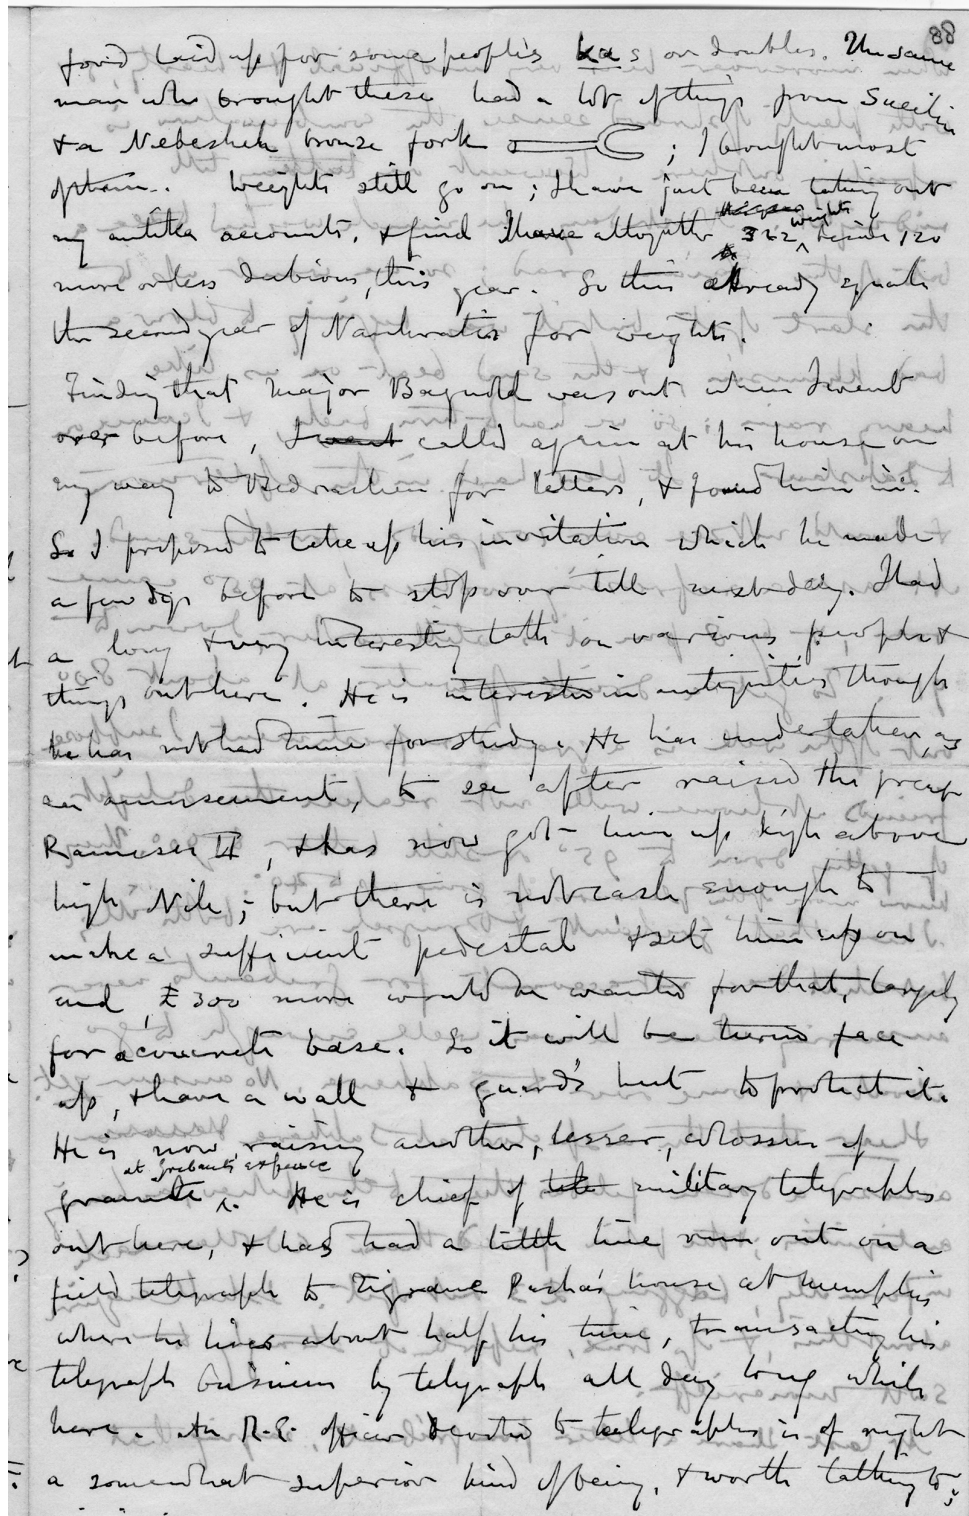 88
ford laid up for some people's kas or doubles. The same
man who brought these had a lot of things from Sueilin
& a Nebesheh bronze fork ; I bought most
of them. Weights still go on; I have just been taking out
my antika accounts, & find I have altogether 322 weights, beside 120
more or less dubious, this year. So this already equals
the second year of Naukratis for weights.
Finding that Major Bagnold was out when I went
over before, I went called again at his house on
my way to Bedrashen for letters, & found him in.
So I proposed to take up his invitation which he made
a few days before to stop over till next day. I had
a long & very interesting talk on various people &
things out here. He is interested in antiquities though
he has not had time for study. He has undertaken, as
an amusement, to see after raising the great
Rameses II, & has now got him up high above
high Nile; but there is not cash enough to
make a sufficient pedestal & set him up on
end, £300 more would be wanted for that, largely
for a concrete base. So it will be turned face
up, & have a wall & guard's hut to protect it.
He is now raising another, lesser, colossus of
at Grebaut's expense
granite. He is chief of tele military telegraphs
out here, & has had a little line run out on a
field telegraph to Tigrane Pasha's house at Memphis
where he lives about half his time, transacting his
telegraph business by telegraph all day long while
here. An R.E. officer devoted to telegraphs is of right
a somewhat superior kind of being, & worth talking to;